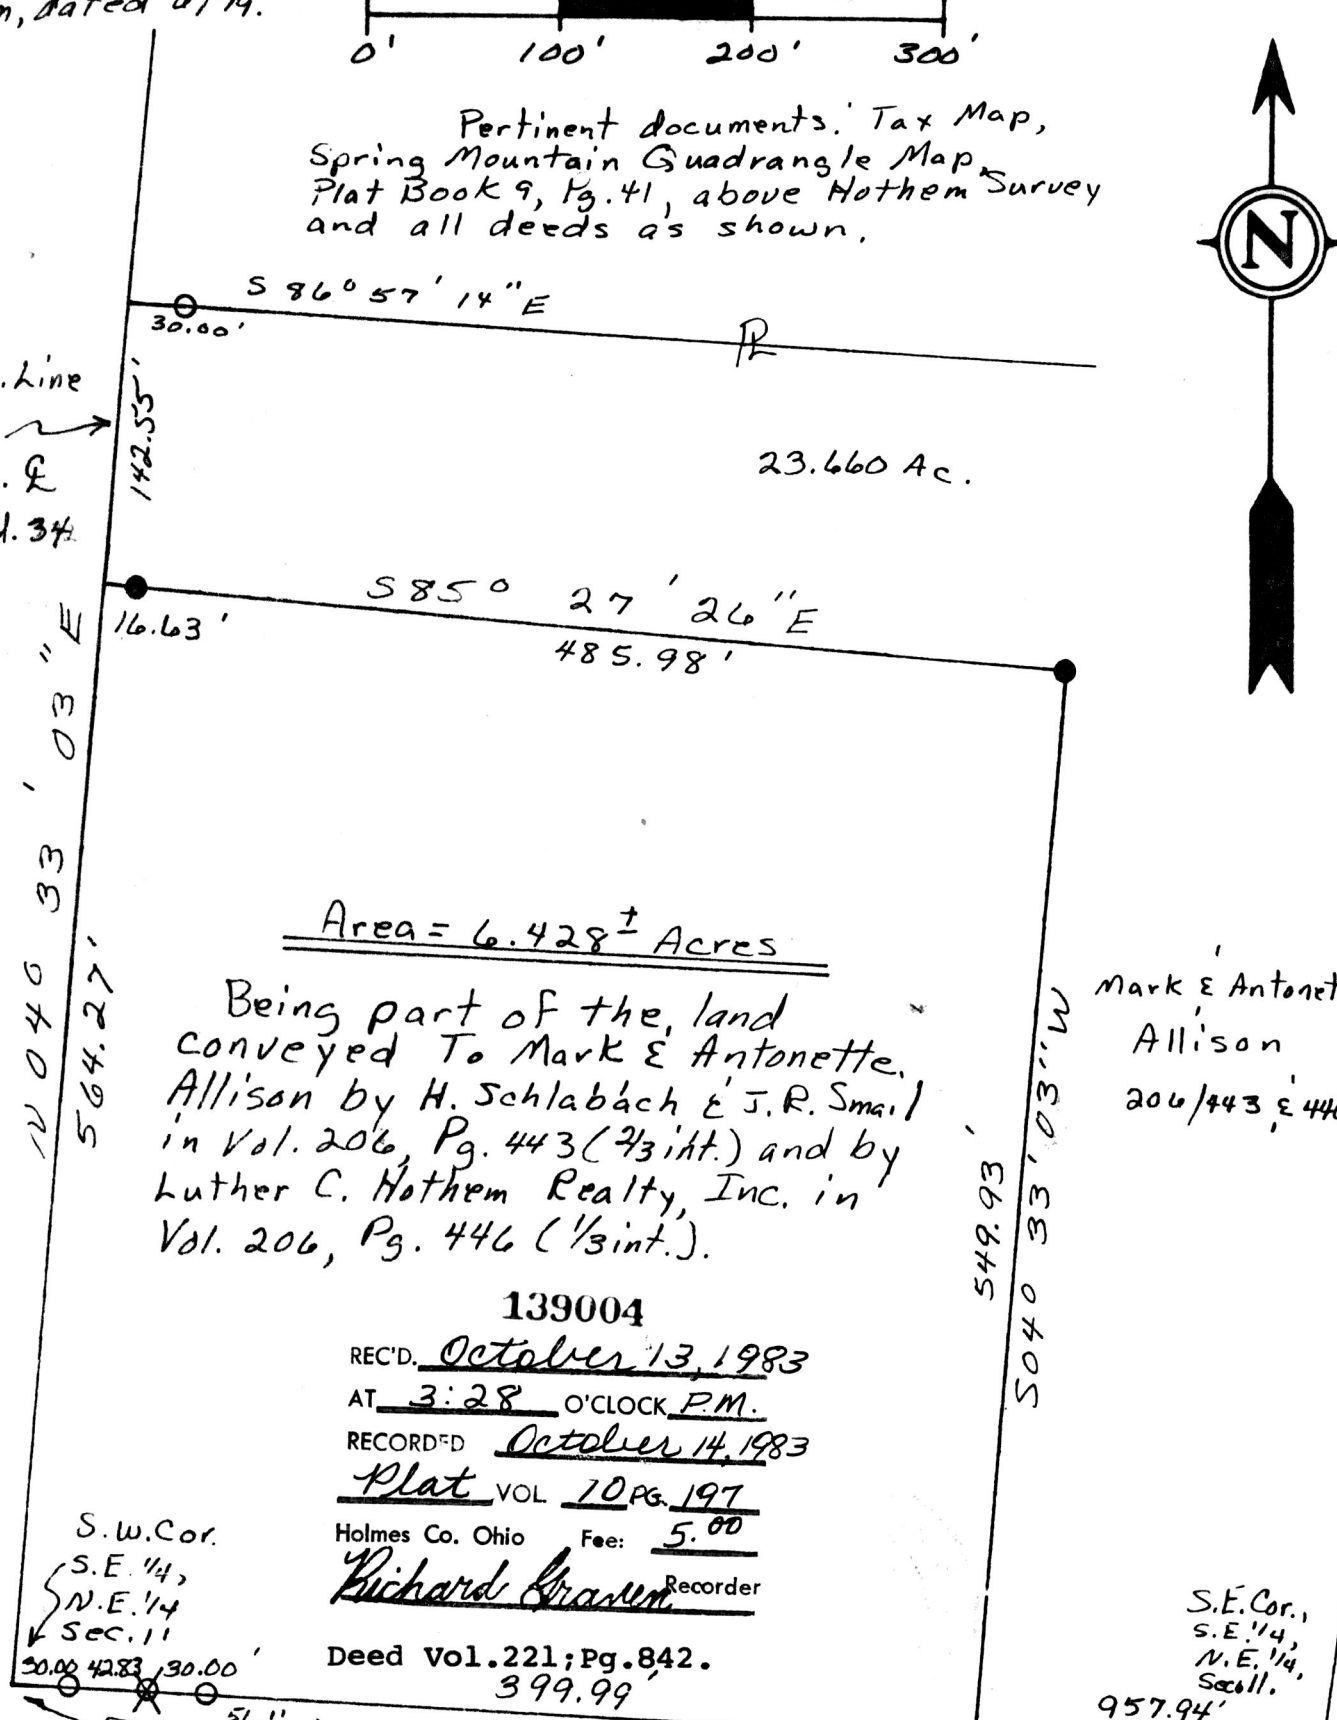 dated
0' 100' 200' 300'
Pertinent documents: Tax Map,
Spring Mountain Quadrangle Map,
Plat Book 9, Pg. 41, above Hothem Survey
and all deeds as shown.
N
S 86° 57' 14" E
30.00'
PL
. Line
142.55'
23.660 Ac.
. CL
S 85° 27' 26" E
16.63'
485.98'
N 04° 33' 03" E
564.27'
Area = 6.428± Acres
Being part of the land
conveyed To Mark & Antonette
Allison by H. Schlabach & J.R. Smail
in Vol. 206, Pg. 443 (2/3 int.) and by
Luther C. Hothem Realty, Inc. in
Vol. 206, Pg. 446 (1/3 int.).
Mark & Antonet
Allison
206/443 & 446
549.93'
S 04° 33' 03" W
139004
REC'D. October 13, 1983
AT 3:28 O'CLOCK P.M.
RECORDED October 14, 1983
Plat VOL 10 PG. 197
Holmes Co. Ohio Fee: 5.00
Richard Graven Recorder
Deed Vol.221;Pg.842.
S.W. Cor.
S.E. 1/4,
N.E. 1/4
Sec. 11
30.00 42.83 30.00'
399.99'
S.E. Cor.,
S.E. 1/4,
N.E. 1/4,
Sec. 11.
957.94'